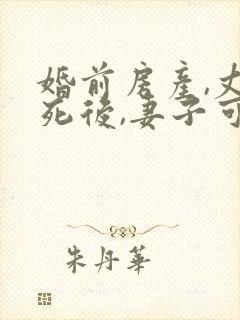 婚前房產,丈
死後,妻子可
朱丹華